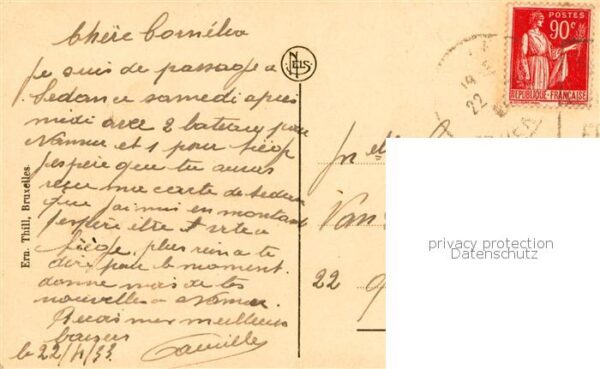 Chère Cornélia
Je suis de passage a
Sedan ce samedi après
midi avec 2 bateaux pour
Namur et 1 pour Liège
J'espère que tu auras
reçu ma carte de Sedan
que j'ai mis en montant
J'espère être
Liège, plus rien a te
dire pour le moment.
donne moi de tes
nouvelles a Namur.
Reçois mes meilleurs
baisers
le 22/4/33. Camille
NELS
Ern. Thill, Bruxelles.
POSTES
90c
REPUBLIQUE FRANÇAISE
19
22
Melle
Van
22
privacy protection
Datenschutz